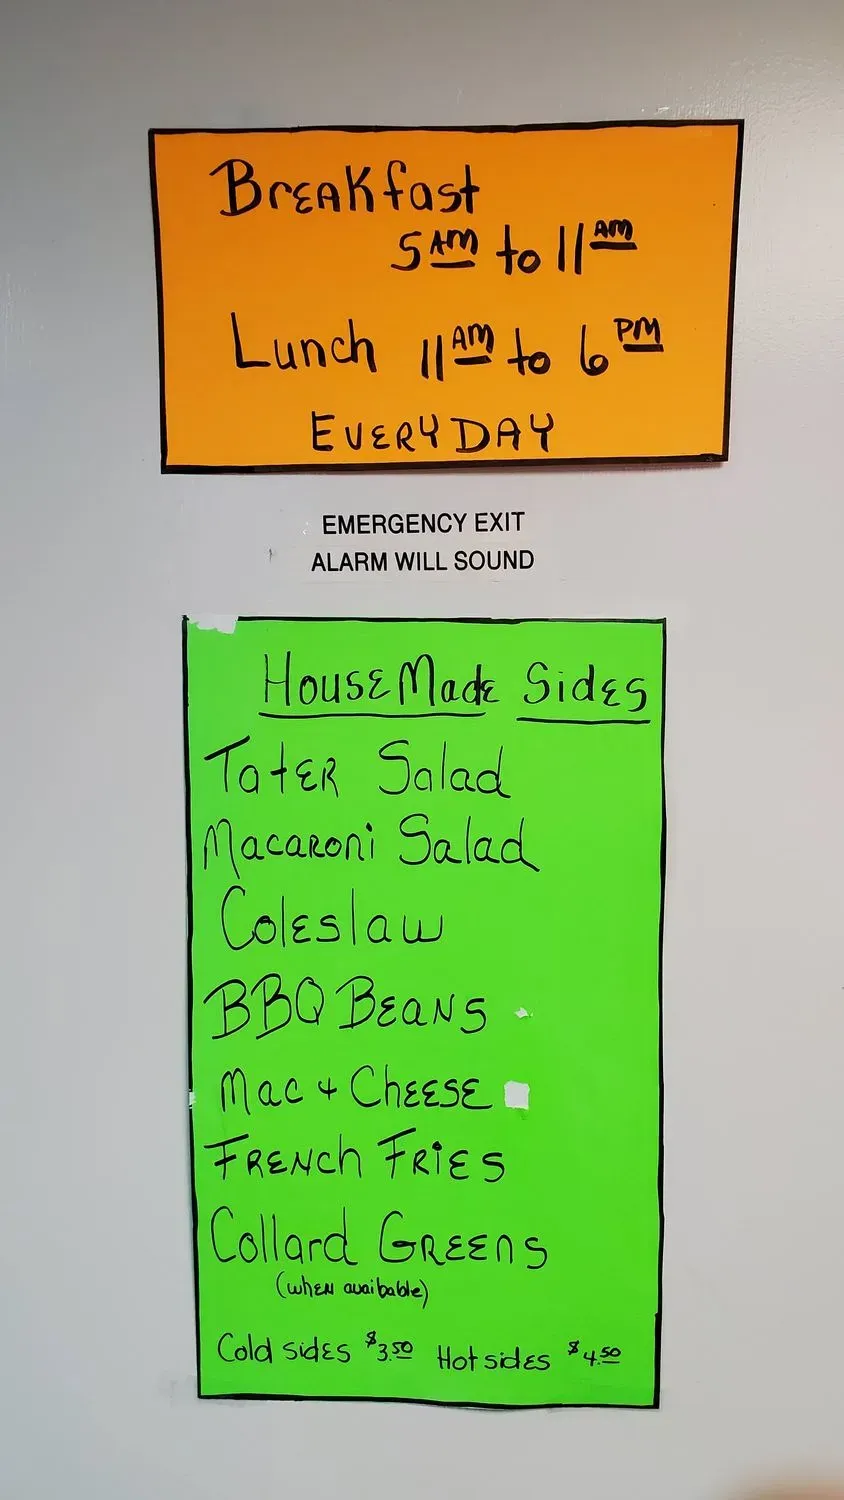 Breakfast
5 AM to 11 AM
Lunch 11 AM to 6 PM
EVERYDAY
EMERGENCY EXIT
ALARM WILL SOUND
HouseMade Sides
Tater Salad
Macaroni Salad
Coleslaw
BBQ Beans
Mac & Cheese
French Fries
Collard Greens
(when avaibable)
Cold sides $3.50 Hot sides $4.50